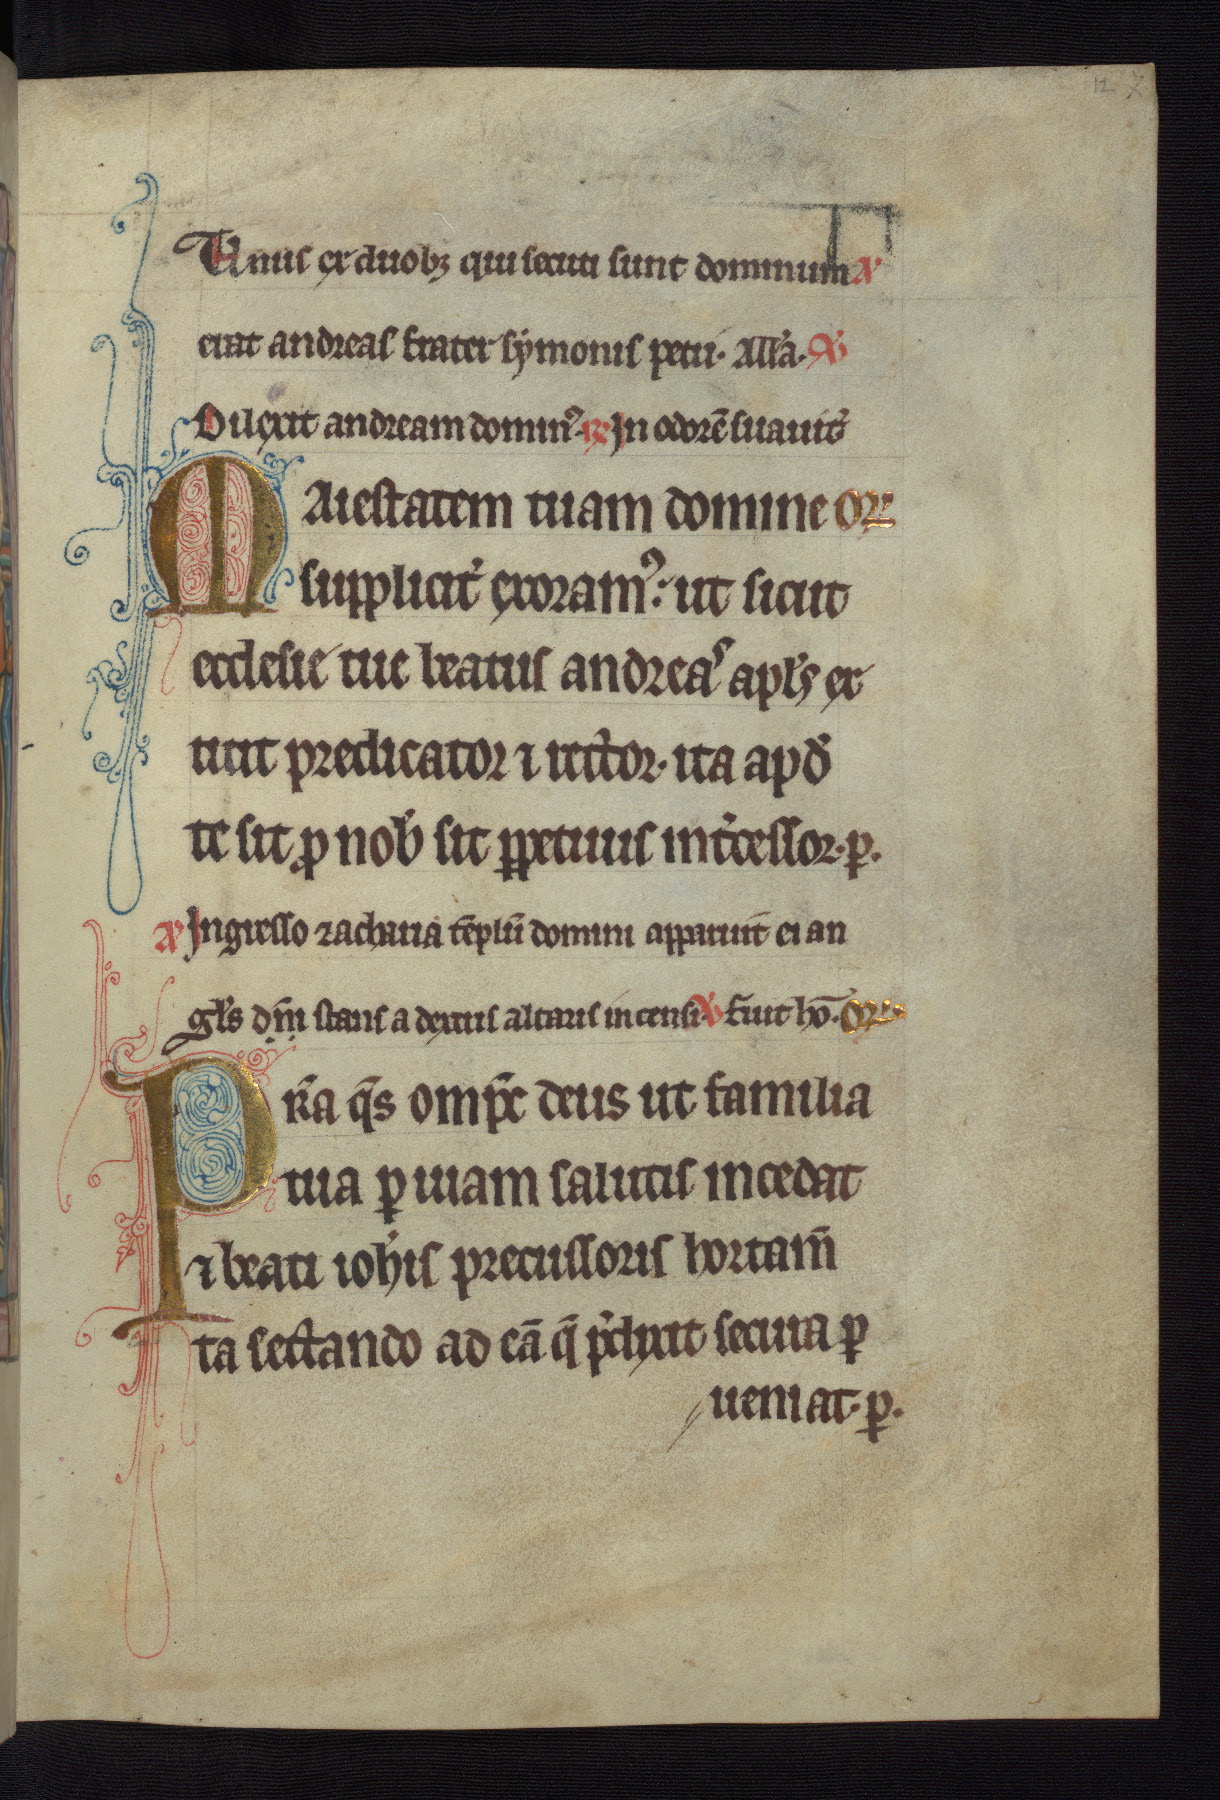 12 7
Unus ex duobꝫ qui secuti sunt dominum a᷑
erat andreas frater symonis petri· All'a· V᷑
Dilexit andream domin᷒· ℞ In odorē suauit᷑
MAiestatem tuam domine or᷑
supplicit᷑ exoram᷒: ut sicut
ecclesie tue beatus andreas apl's ex
titit predicator ⁊ rector· ita apd᷑
te sit ꝓ nob᷑ sit ꝑpetuus int᷑cessor· p̱.
a᷑ Ingresso zacharia tēplū domini apparuit ei an
gl's dn̄i stans a dextris altaris incensi· V᷑ Fuit hō· Or᷑
Pr̄a q̄s omp̄c deus ut familia
tua ꝑ uiam salutis incedat
⁊ beati ioh'is precussoris hortam̄
ta sectando ad eā q̄ p᷑dixit secura ꝑ
ueniat· ꝑ.